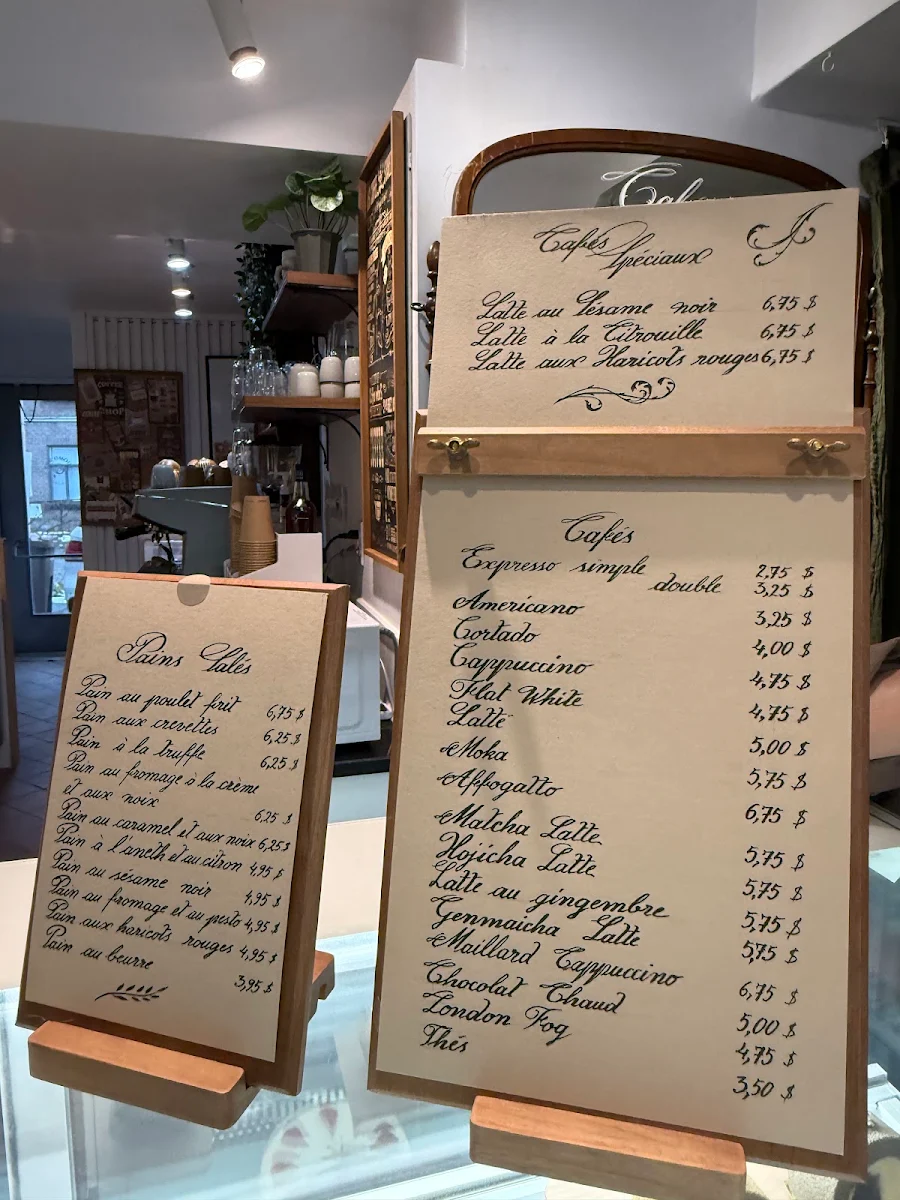 Cafés
Spéciaux
Latte au Sésame noir 6,75 $
Latte à la Citrouille 6,75 $
Latte aux Haricots rouges 6,75 $
Cafés
Expresso simple 2,75 $
double 3,25 $
Americano 3,25 $
Cortado 4,00 $
Cappuccino 4,75 $
Flat White 4,75 $
Latte 5,00 $
Moka 5,75 $
Affogatto 6,75 $
Matcha Latte 5,75 $
Hojicha Latte 5,75 $
Latte au gingembre 5,75 $
Genmaicha Latte 5,75 $
Maillard Cappuccino 6,75 $
Chocolat Chaud 5,00 $
London Fog 4,75 $
Thés 3,50 $
Pains Salés
Pain au poulet frit 6,75 $
Pain aux crevettes 6,25 $
Pain à la truffe 6,25 $
Pain au fromage à la crème
et aux noix 6,25 $
Pain au caramel et aux noix 6,25 $
Pain à l'aneth et au citron 4,95 $
Pain au sésame noir 4,95 $
Pain au fromage et au pesto 4,95 $
Pain aux haricots rouges 4,95 $
Pain au beurre 3,95 $
COFFEE
SHOP